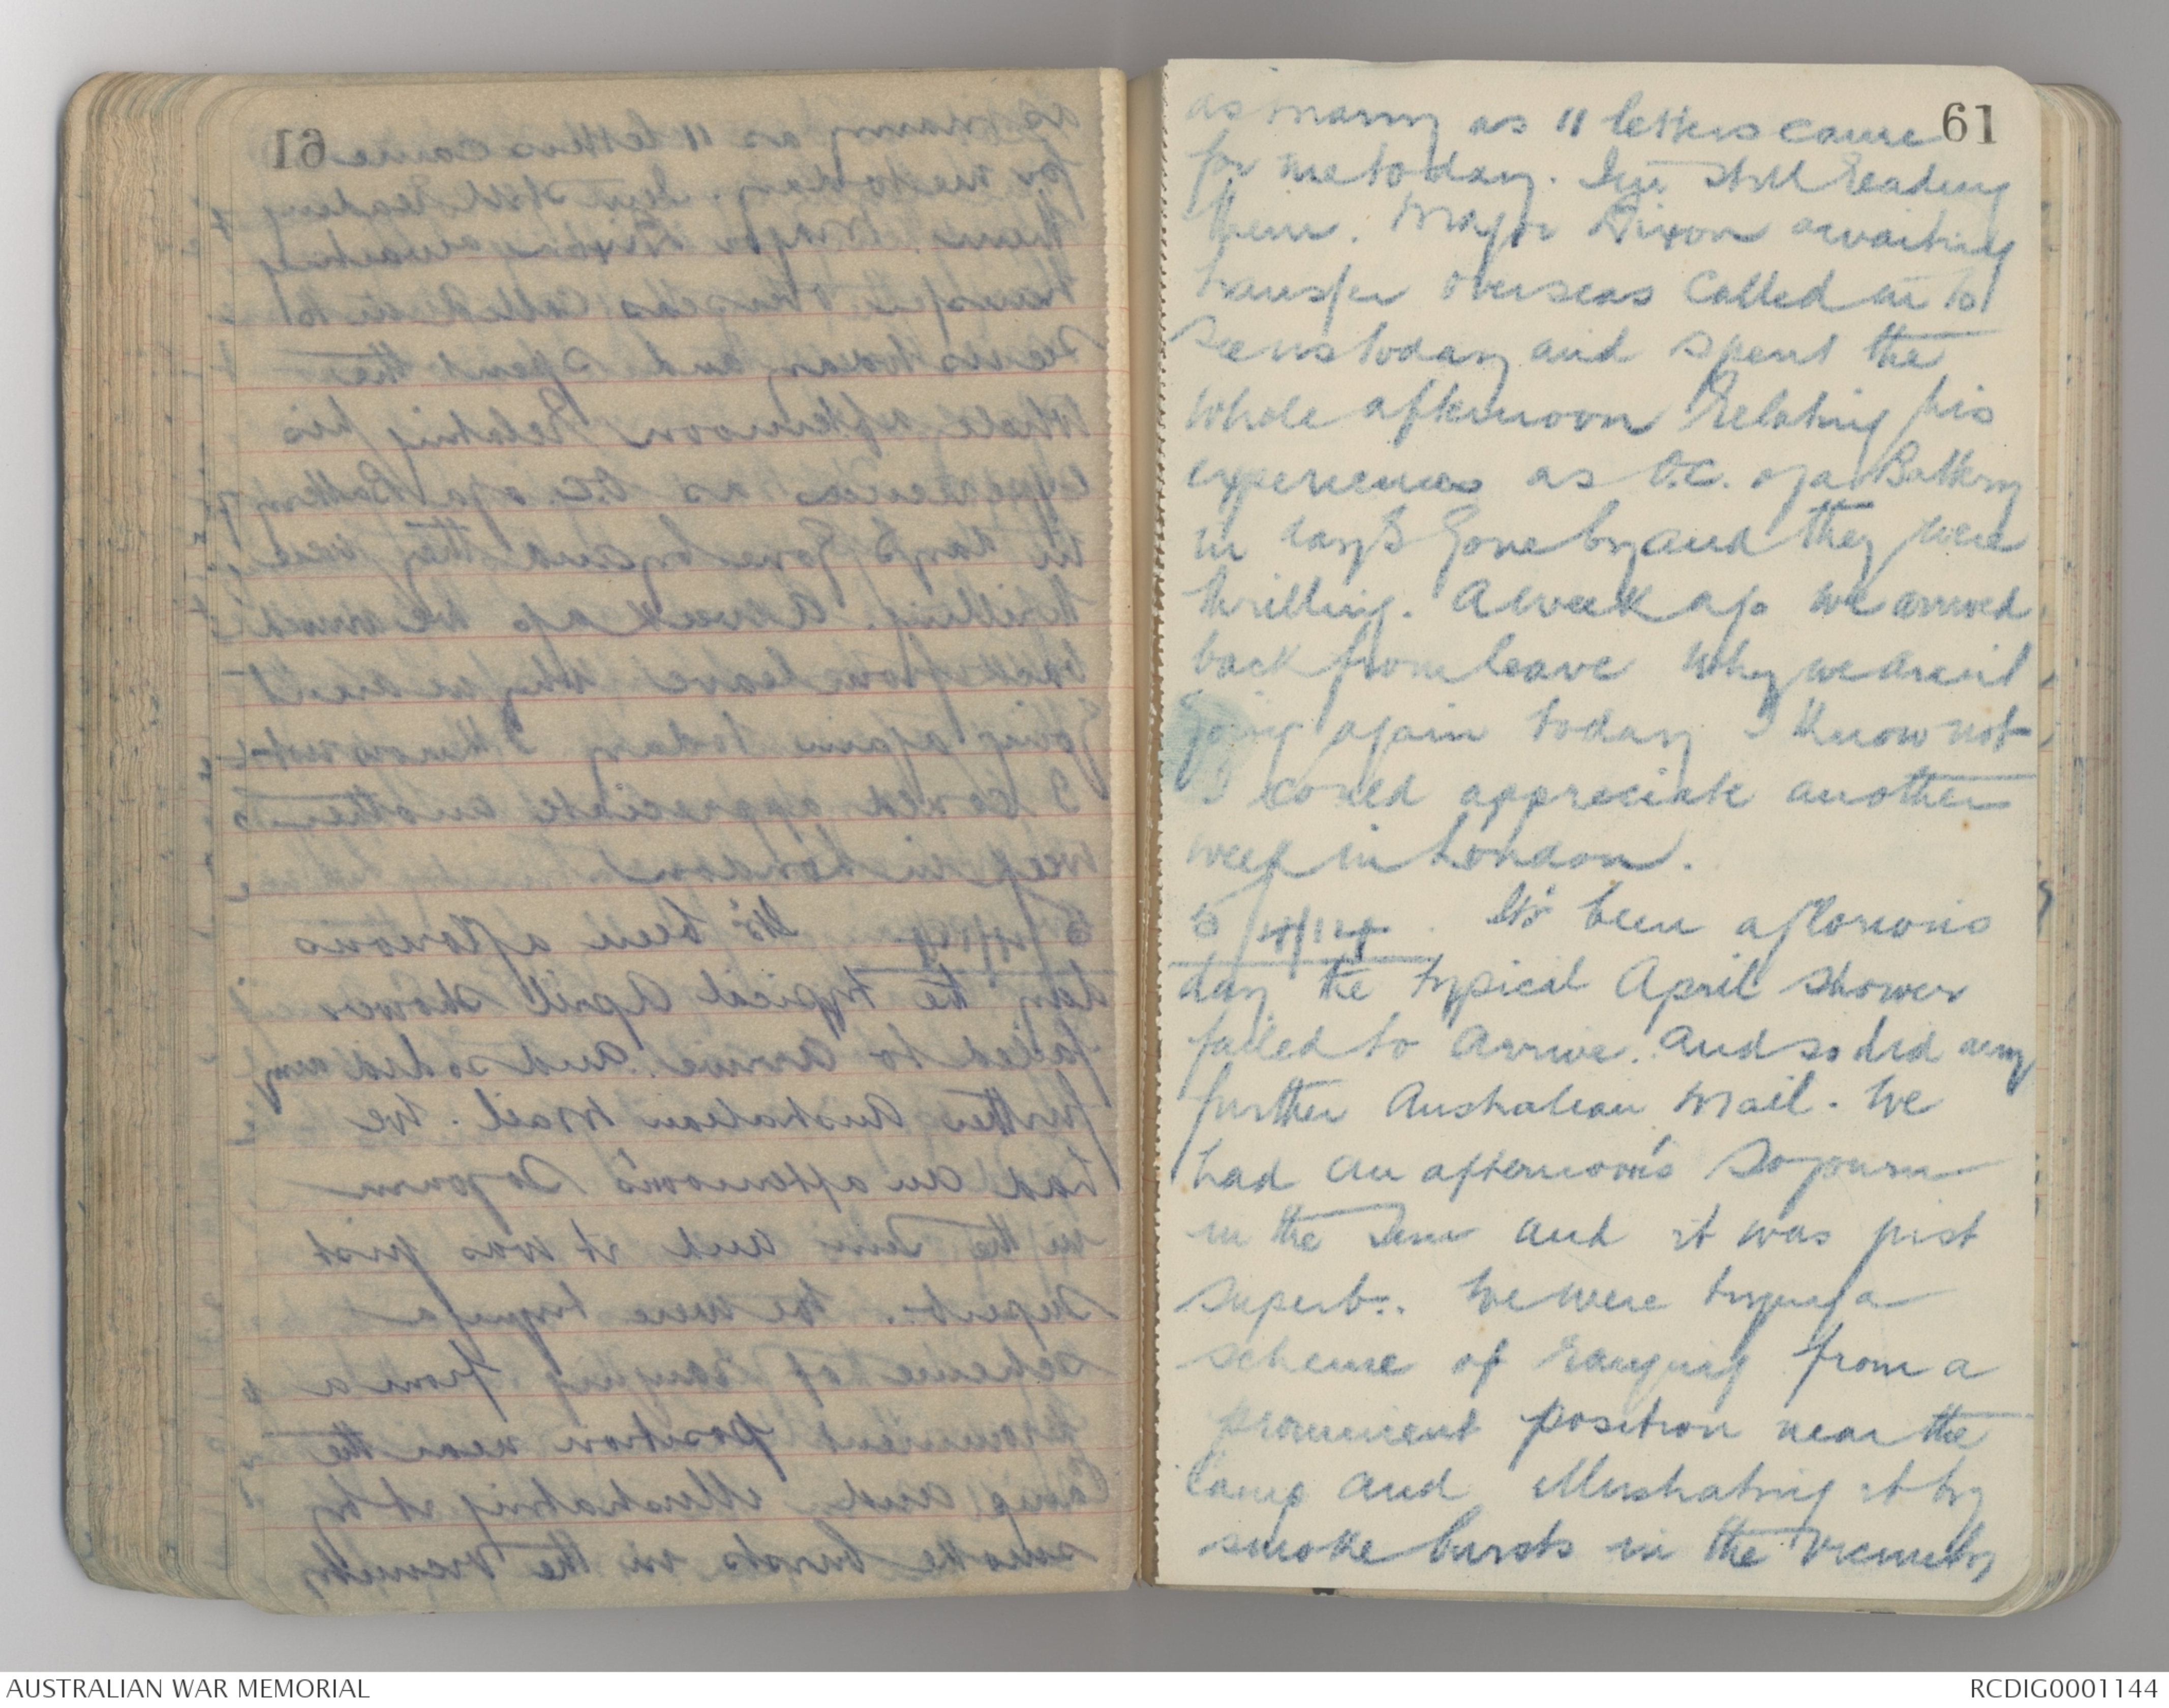 61
as many as 11 letters came
for me today. I'm still reading
them. Major Dixon awaiting
transfer overseas called in to
see us today and spent the
whole afternoon relating his
experiences as O.C. of a Battery
in days gone by and they were
thrilling. A week ago we arrived
back from leave why we arent
going again today I know not
I could appreciate another
week in London.
5/4/19. It's been a glorious
day the typical April shower
failed to arrive. And so did any
further Australian mail. We
had an afternoon's sojourn
in the Sun and it was just
superb. We were trying a
scheme of ranging from a
prominent position near the
camp and illustrating it by
smoke bursts in the vicinity
AUSTRALIAN WAR MEMORIAL
RCDIG0001144